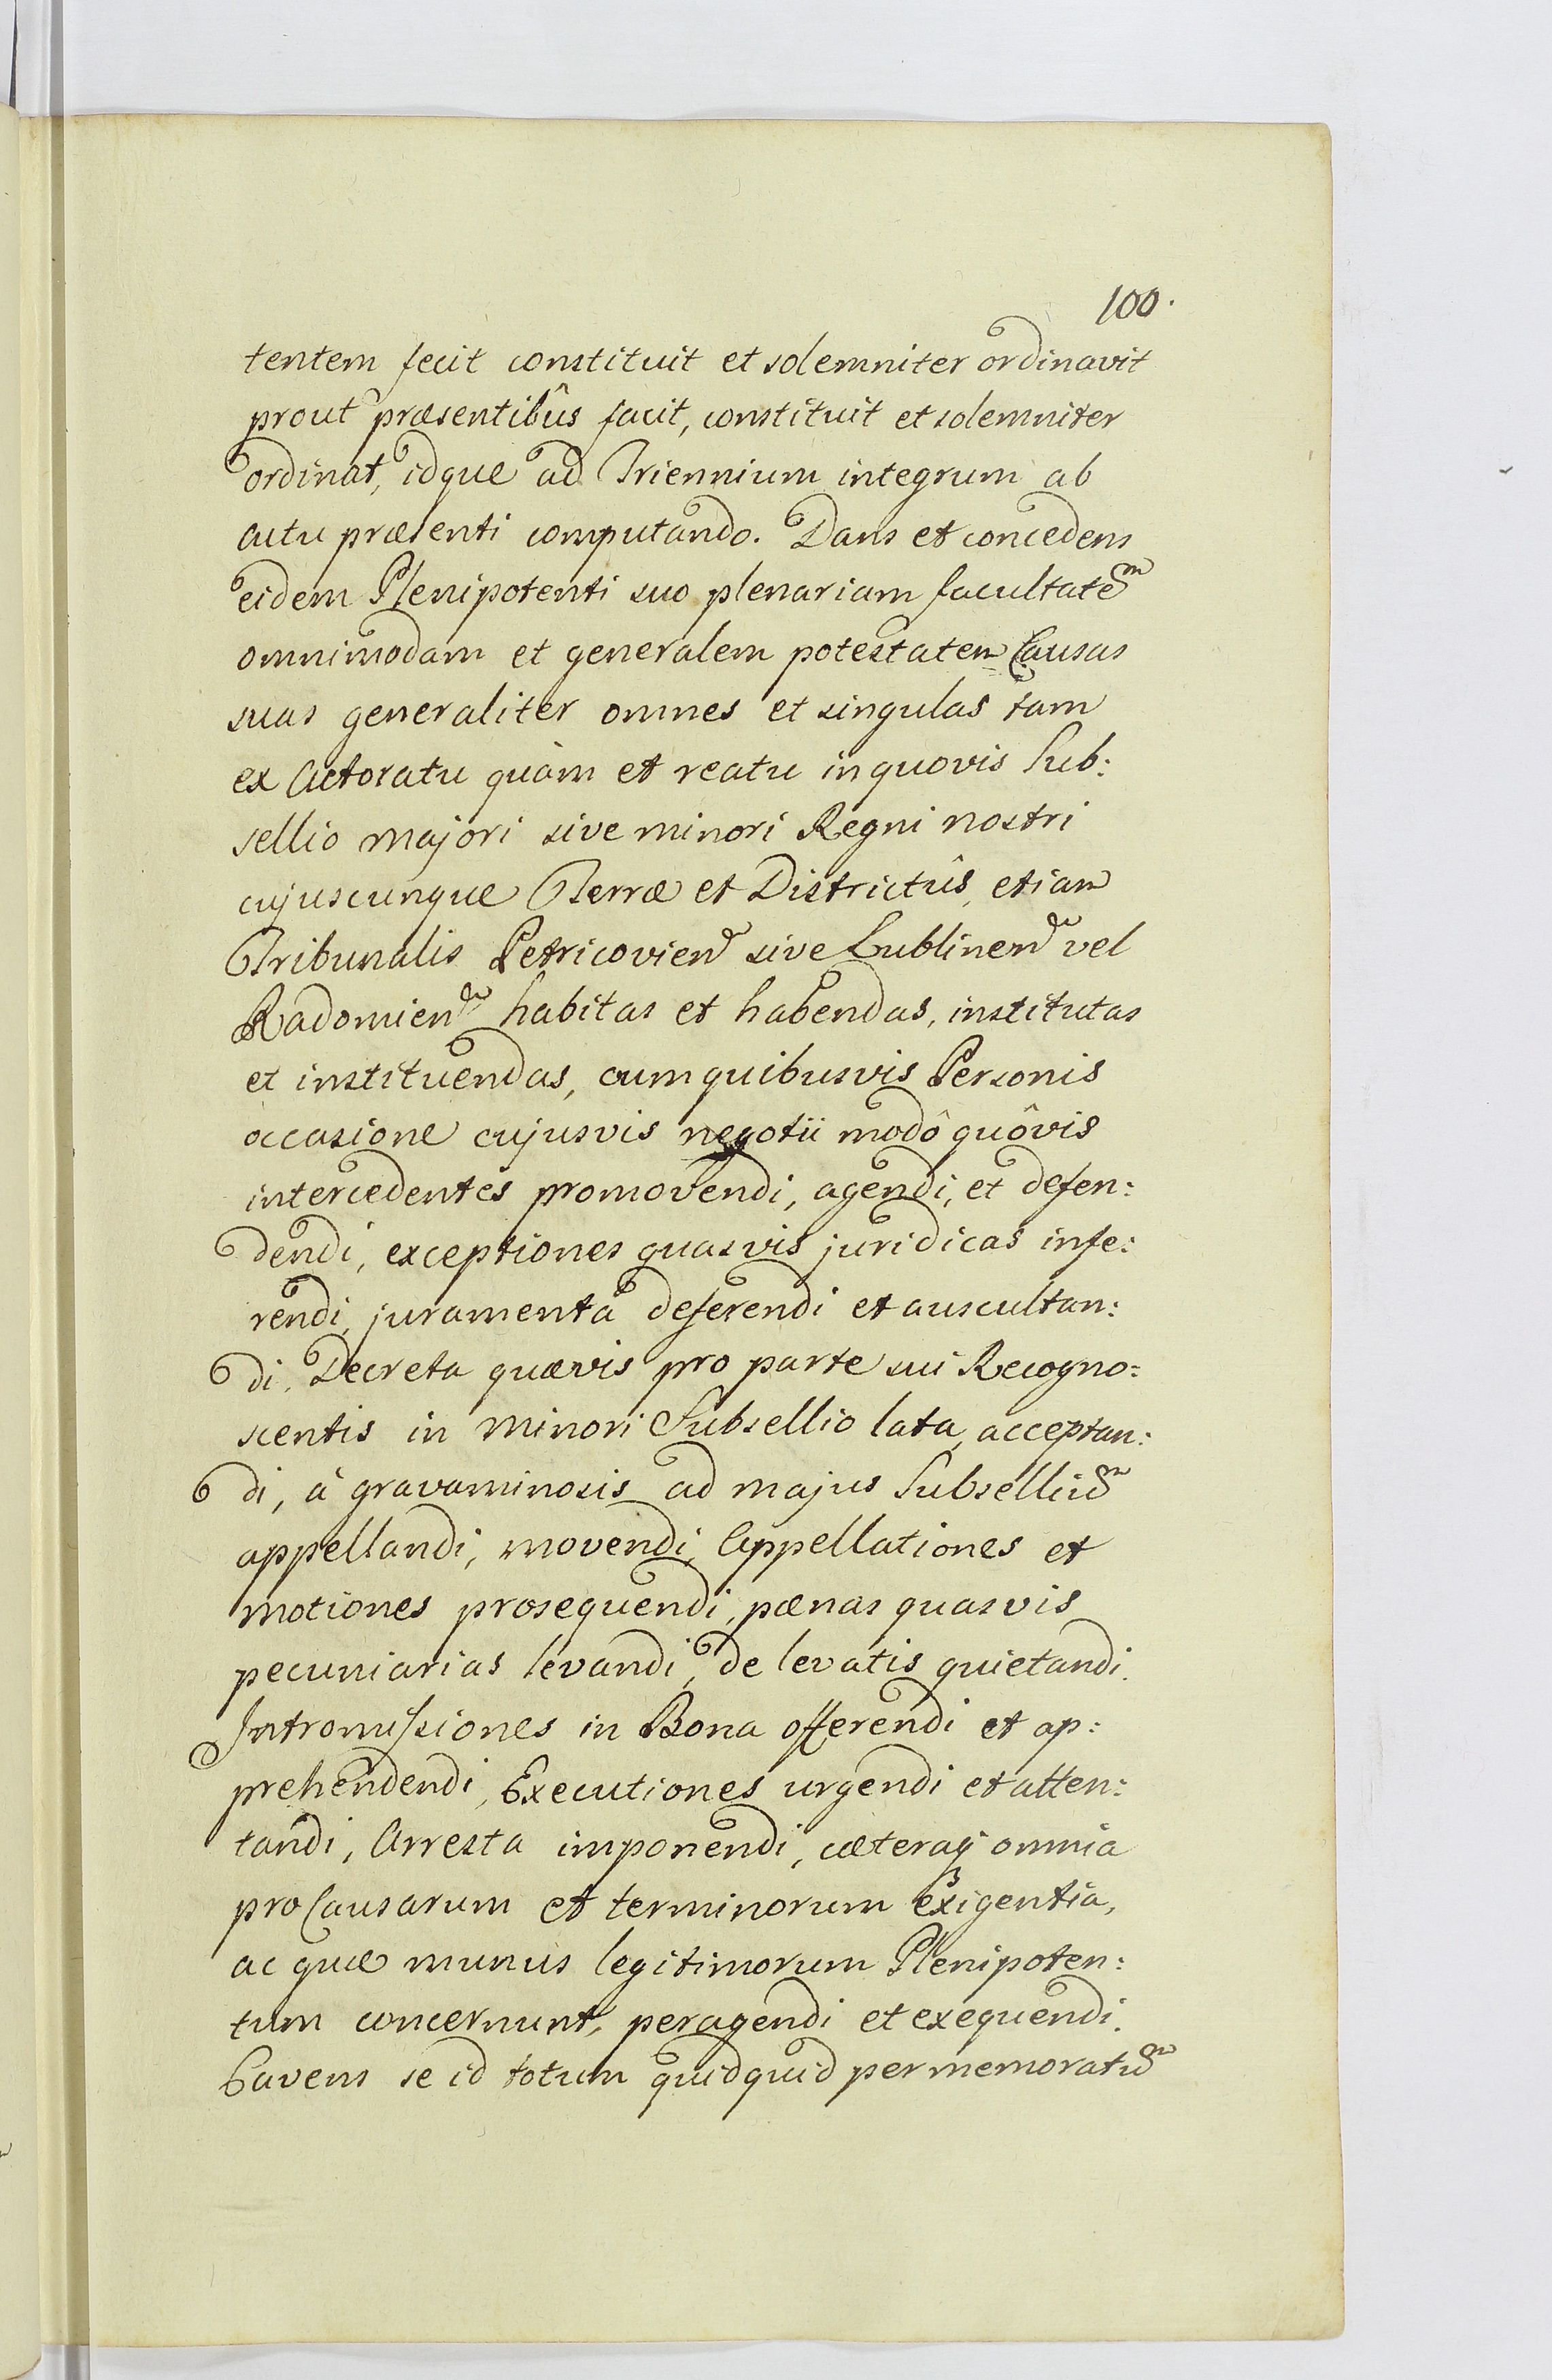 100.
tentem fecit constituit et solemniter ordinavit
prout præsentibûs facit, constituit et solemniter
ordinat, idque ad Triennium integrum ab
actu præsenti computando. Dans et concedens
eidem Plenipotenti suo plenariam facultatẽᵐ
omnimodam et generalem potestatem Causas
suas generaliter omnes et singulas tam
ex Actoratu quàm et reatu in quovis Sub:
sellio majori sive minori Regni nostri
cujuscunque Terræ et Districtûs, etiam
Tribunalis Petricovien̄ sive Lublinen̄ vel
Radomien̄ habitas et habendas, institutas
et instituendas, cum quibusvis Personis
occasione cujusvis negotii modô quôvis
intercedentes promovendi, agendi, et defen:
dendi, exceptiones quasvis juridicas infe:
rendi, juramenta deferendi et auscultan:
di. Decreta quævis pro parte sui Recogno:
scentis in minori Subsellio lata, acceptan:
di, à gravaminosis ad majus Subselliũᵐ
appellandi, movendi, Appellationes et
motiones prosequendi, pænas quasvis
pecuniarias levandi, de levatis quietandi.
Intromissiones in Bona offerendi et ap:
prehendendi, Executiones urgendi et atten:
tandi, Arresta imponendi, cæteraq; omnia
pro Causarum et terminorum exigentia,
ac quæ munus legitimorum Plenipoten:
tum concernunt, peragendi et exequendi.
Cavens se id totum quidquid per memoratũᵐ